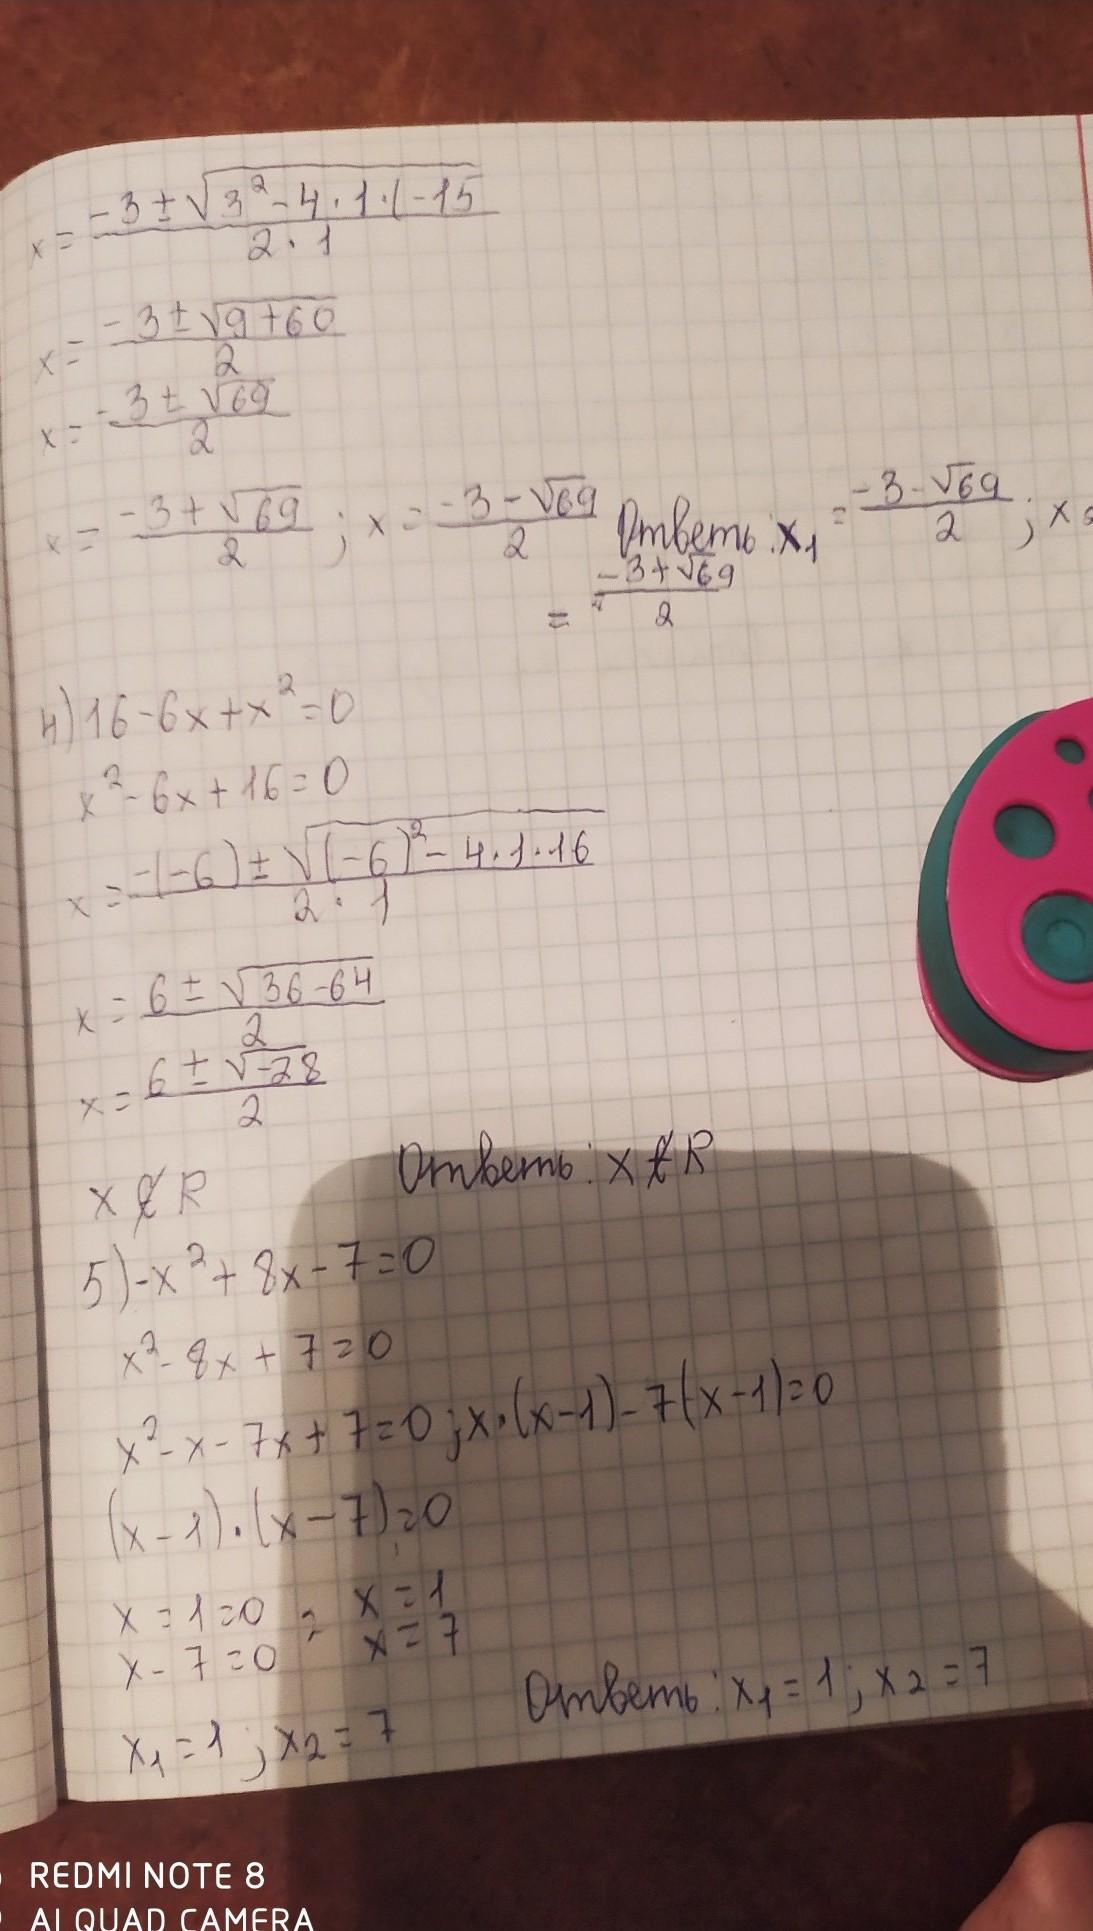 x = (-3 ± √(3² - 4 · 1 · (-15)) / (2 · 1)
x = (-3 ± √(9 + 60)) / 2
x = (-3 ± √69) / 2
x = (-3 + √69) / 2 ; x = (-3 - √69) / 2 Ответь: x₁ = (-3 - √69) / 2 ; x₂
= (-3 + √69) / 2
4) 16 - 6x + x² = 0
x² - 6x + 16 = 0
x = (-(-6) ± √((-6)² - 4 · 1 · 16)) / (2 · 1)
x = (6 ± √(36 - 64)) / 2
x = (6 ± √-28) / 2
x ∉ R Ответь: x ∉ R
5) -x² + 8x - 7 = 0
x² - 8x + 7 = 0
x² - x - 7x + 7 = 0 ; x · (x - 1) - 7(x - 1) = 0
(x - 1) · (x - 7) = 0
x = 1 = 0 = x = 1
x - 7 = 0 x = 7
x₁ = 1 ; x₂ = 7 Ответь: x₁ = 1 ; x₂ = 7
REDMI NOTE 8
AI QUAD CAMERA